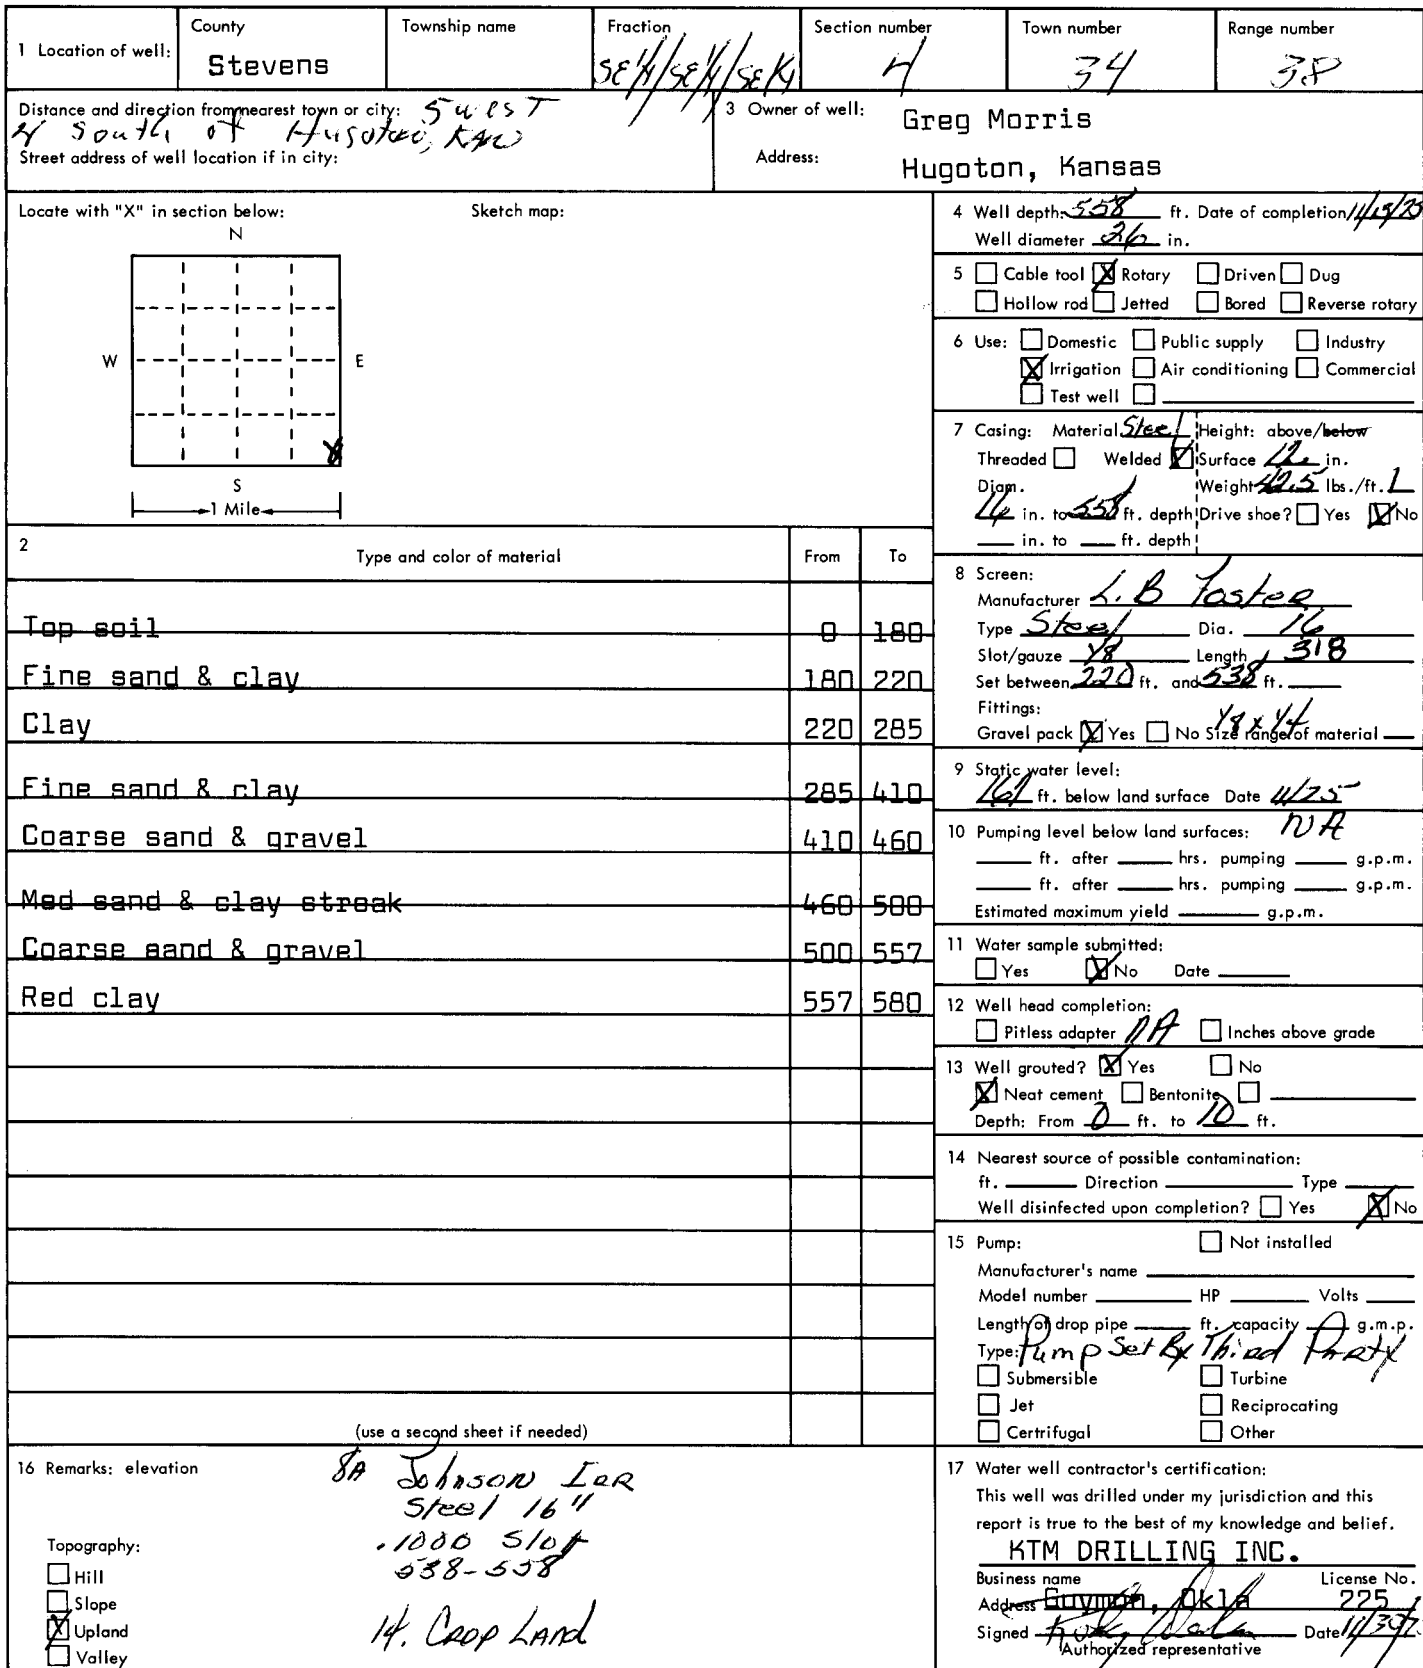 1 Location of well: County Township name Fraction Section number Town number Range number
Stevens SE¼/SE¼/SE¼ 4 34 38
Distance and direction from nearest town or city: 5 west
4 South of Hugoton, Kan
Street address of well location if in city:
3 Owner of well: Greg Morris
Address: Hugoton, Kansas
Locate with "X" in section below: Sketch map:
N
W E
X
S
1 Mile
2 Type and color of material From To
Top soil 0 180
Fine sand & clay 180 220
Clay 220 285
Fine sand & clay 285 410
Coarse sand & gravel 410 460
Med sand & clay streak 460 500
Coarse sand & gravel 500 557
Red clay 557 580
(use a second sheet if needed)
4 Well depth: 558 ft. Date of completion 11/15/75
Well diameter 26 in.
5 Cable tool X Rotary Driven Dug
Hollow rod Jetted Bored Reverse rotary
6 Use: Domestic Public supply Industry
X Irrigation Air conditioning Commercial
Test well
7 Casing: Material Steel Height: above/below
Threaded Welded X Surface 12 in.
Diam. Weight 42.5 lbs./ft.
16 in. to 558 ft. depth Drive shoe? Yes X No
in. to ft. depth
8 Screen:
Manufacturer L.B Foster
Type Steel Dia. 16
Slot/gauze 1/8 Length 318
Set between 220 ft. and 538 ft.
Fittings: 1/8 x 1/4
Gravel pack X Yes No Size range of material
9 Static water level:
ft. below land surface Date 11/75
10 Pumping level below land surfaces: NA
ft. after hrs. pumping g.p.m.
ft. after hrs. pumping g.p.m.
Estimated maximum yield g.p.m.
11 Water sample submitted:
Yes X No Date
12 Well head completion:
Pitless adapter NA Inches above grade
13 Well grouted? X Yes No
X Neat cement Bentonite
Depth: From 0 ft. to 10 ft.
14 Nearest source of possible contamination:
ft. Direction Type
Well disinfected upon completion? Yes X No
15 Pump: Not installed
Manufacturer's name
Model number HP Volts
Length of drop pipe ft. capacity g.m.p.
Type: Pump Set By Third Party
Submersible Turbine
Jet Reciprocating
Certrifugal Other
16 Remarks: elevation
8A Johnson Irr
Steel 16"
.1000 Slot
538-558
14. Crop Land
Topography:
Hill
Slope
X Upland
Valley
17 Water well contractor's certification:
This well was drilled under my jurisdiction and this
report is true to the best of my knowledge and belief.
KTM DRILLING INC.
Business name License No.
Address Guymon, Okla 225
Signed Date
Authorized representative